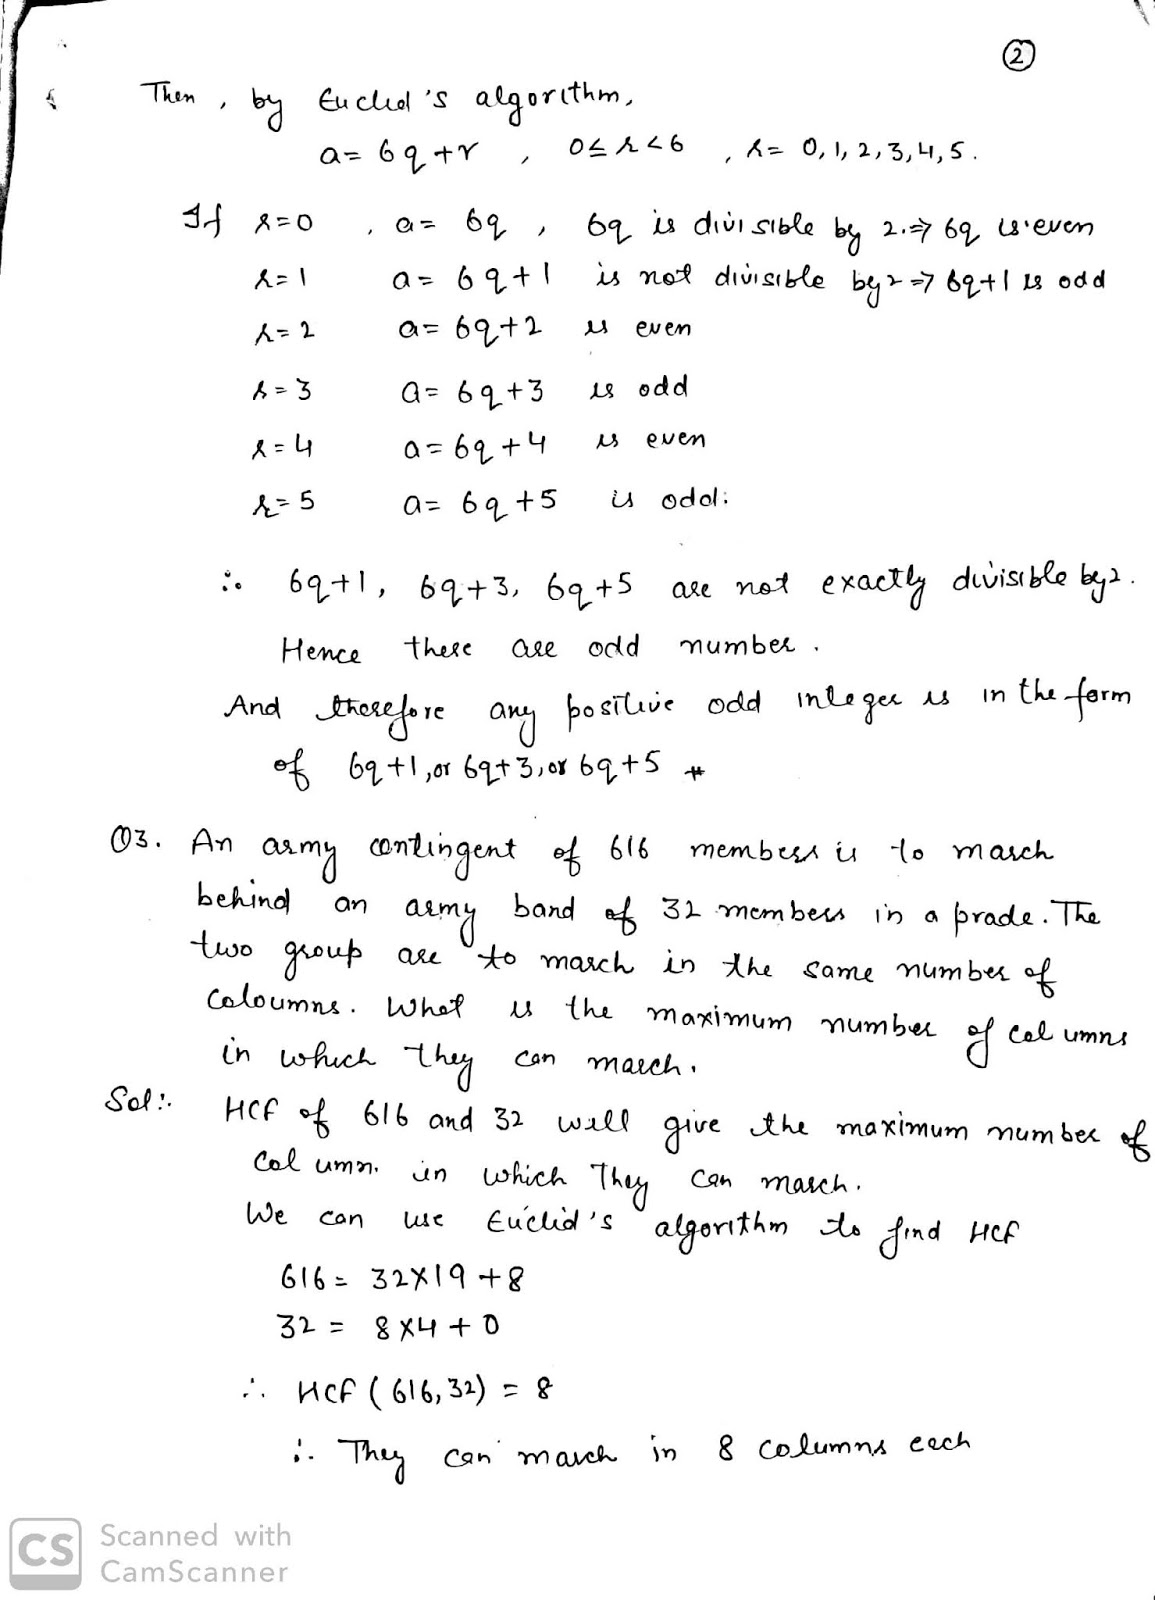 ②
Then, by Euclid's algorithm,
a = 6q+r , 0≤r<6 , r = 0,1,2,3,4,5.
If r=0 , a= 6q , 6q is divisible by 2.⇒ 6q is even
r=1 a= 6q+1 is not divisible by 2 ⇒ 6q+1 is odd
r=2 a= 6q+2 is even
r=3 a= 6q+3 is odd
r=4 a= 6q+4 is even
r=5 a= 6q+5 is odd.
∴ 6q+1, 6q+3, 6q+5 are not exactly divisible by 2.
Hence these are odd number.
And therefore any positive odd integer is in the form
of 6q+1, or 6q+3, or 6q+5 #
Q3. An army contingent of 616 members is to march
behind an army band of 32 members in a prade. The
two group are to march in the same number of
coloumns. What is the maximum number of columns
in which they can march.
Sol:. HCF of 616 and 32 will give the maximum number of
column. in which They can march.
We can use Euclid's algorithm to find HCF
616 = 32×19 +8
32 = 8×4 + 0
∴ HCF (616, 32) = 8
∴ They can march in 8 columns each
CS Scanned with
CamScanner